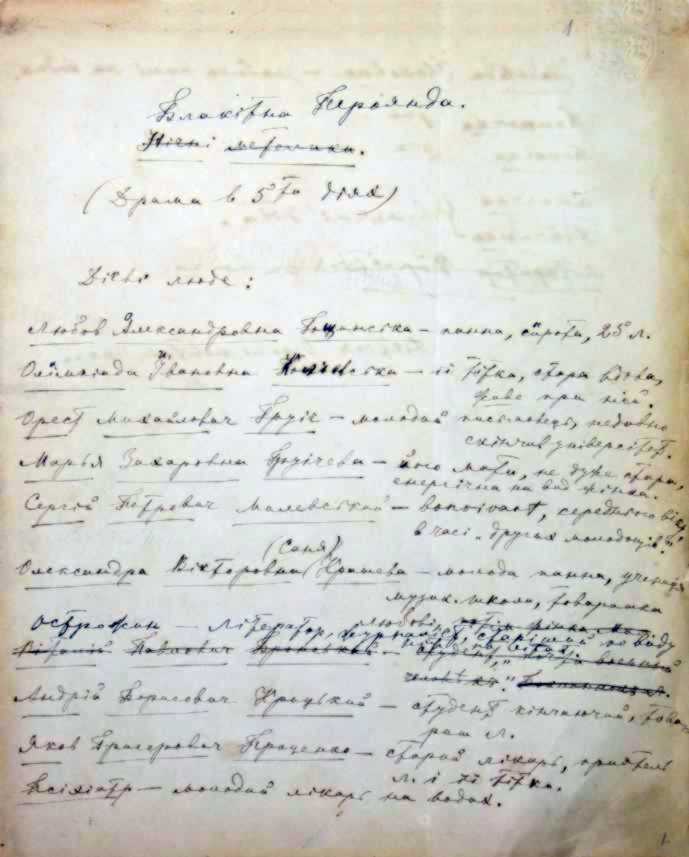 1
Блакітна Троянда.
Нічні метелики.
(Драма в 5ти діях)
Дієві люде:
Любов Александровна Гощинська – панна, сирота, 25 л.
Олімпіада Івановна – її тітка, стара вдова,
живе при ній.
Орест Михайлович Груїч – молодий письмовець, недавно
скінчив університет.
Марья Захаровна Груїчева – його мати, не дуже стара,
енергічна на вид жінка.
Сергій Петрович Милевський – волокита, середнього віку,
в часі „других молодощів".
(Саня)
Олександра Вікторовна Крашева – молода панна, учениця
музик. школи, товаришка
Любові,
Острожин – літератор, журналіст, старіший по виду
Віталій Павлович –
Андрій Борисович Кроцький – студент кінчаючий, това-
риш
Яков Григорович Проценко – старий лікарь, приятель
Л. і її тітки.
Псіхіатр – молодий лікарь на водах.